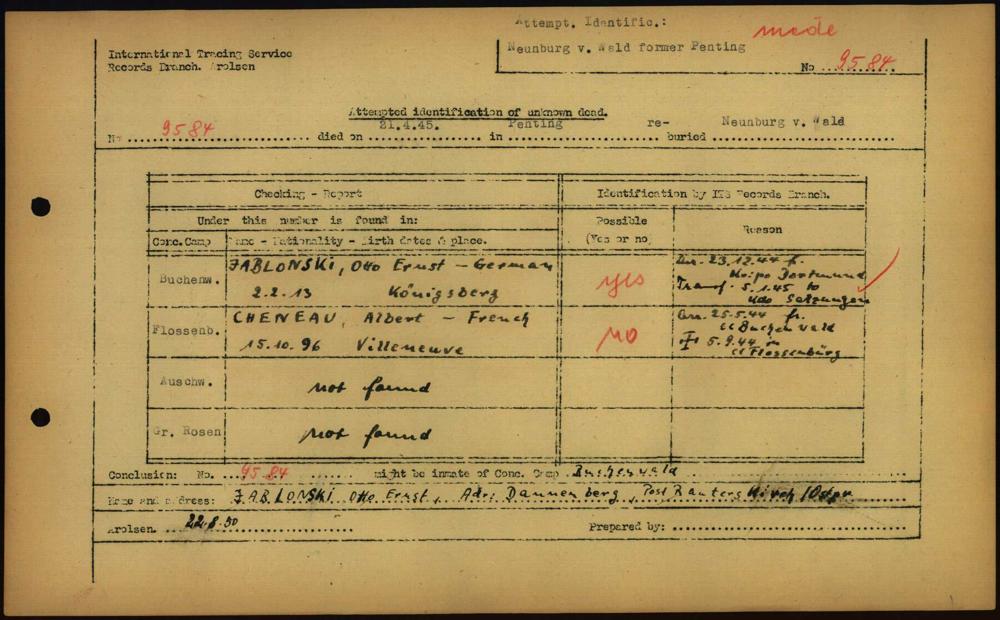 Attempt. Identific.:
made
Neunburg v. Wald former Penting
International Tracing Service
Records Branch. Arolsen
No ...9584
Attempted identification of unknown dead.
No 9584 died on 21.4.45. in Penting re-buried Neunburg v. Wald
Checking - Report
Identification by ITS Records Branch.
Under this number is found in:
Possible
(Yes or no)
Reason
Conc. Camp
Name - Nationality - Birth dates & place.
Buchenw.
JABLONSKI, Otto Ernst - German
2.2.13 Königsberg
yes
Arr. 23.12.44 fr.
Kripo Dortmund
Transf. 5.1.45 to
Kdo Salzungen
Flossenb.
CHENEAU, Albert - French
15.10.96 Villeneuve
NO
Arr. 25.5.44 fr.
CC Buchenwald
5.9.44 in
CC Flossenbürg
Auschw.
not found
Gr. Rosen
not found
Conclusion: No. 9584 might be inmate of Conc. Camp Buchenwald
Name and address: JABLONSKI Otto Ernst, Adr: Dannenberg, Post Rauterskirch /Ostpr
Arolsen. 22.8.50
Prepared by: